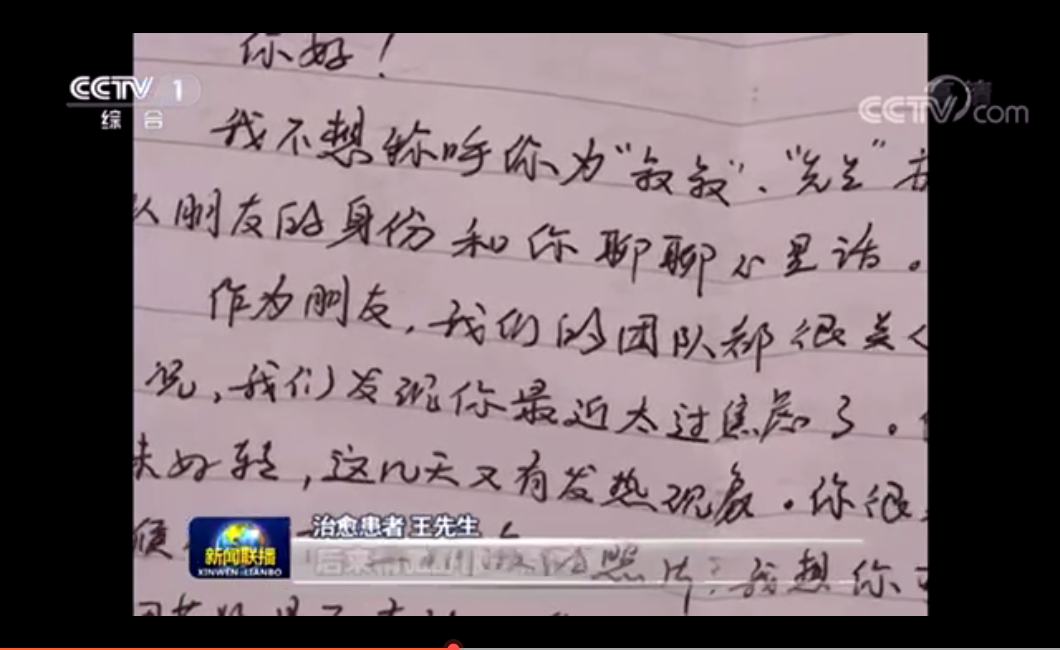 你好！
CCTV 1
综合
CCTV com
我不想称呼你为“叔叔”、“先生”
朋友的身份和你聊聊心里话。
作为朋友，我们的团队都很关
况，我们发现你最近太过焦虑了。
未好转，这几天又有发热现象。你很
治愈患者 王先生
新闻联播
XINWEN LIANBO
后来
照片，我想你